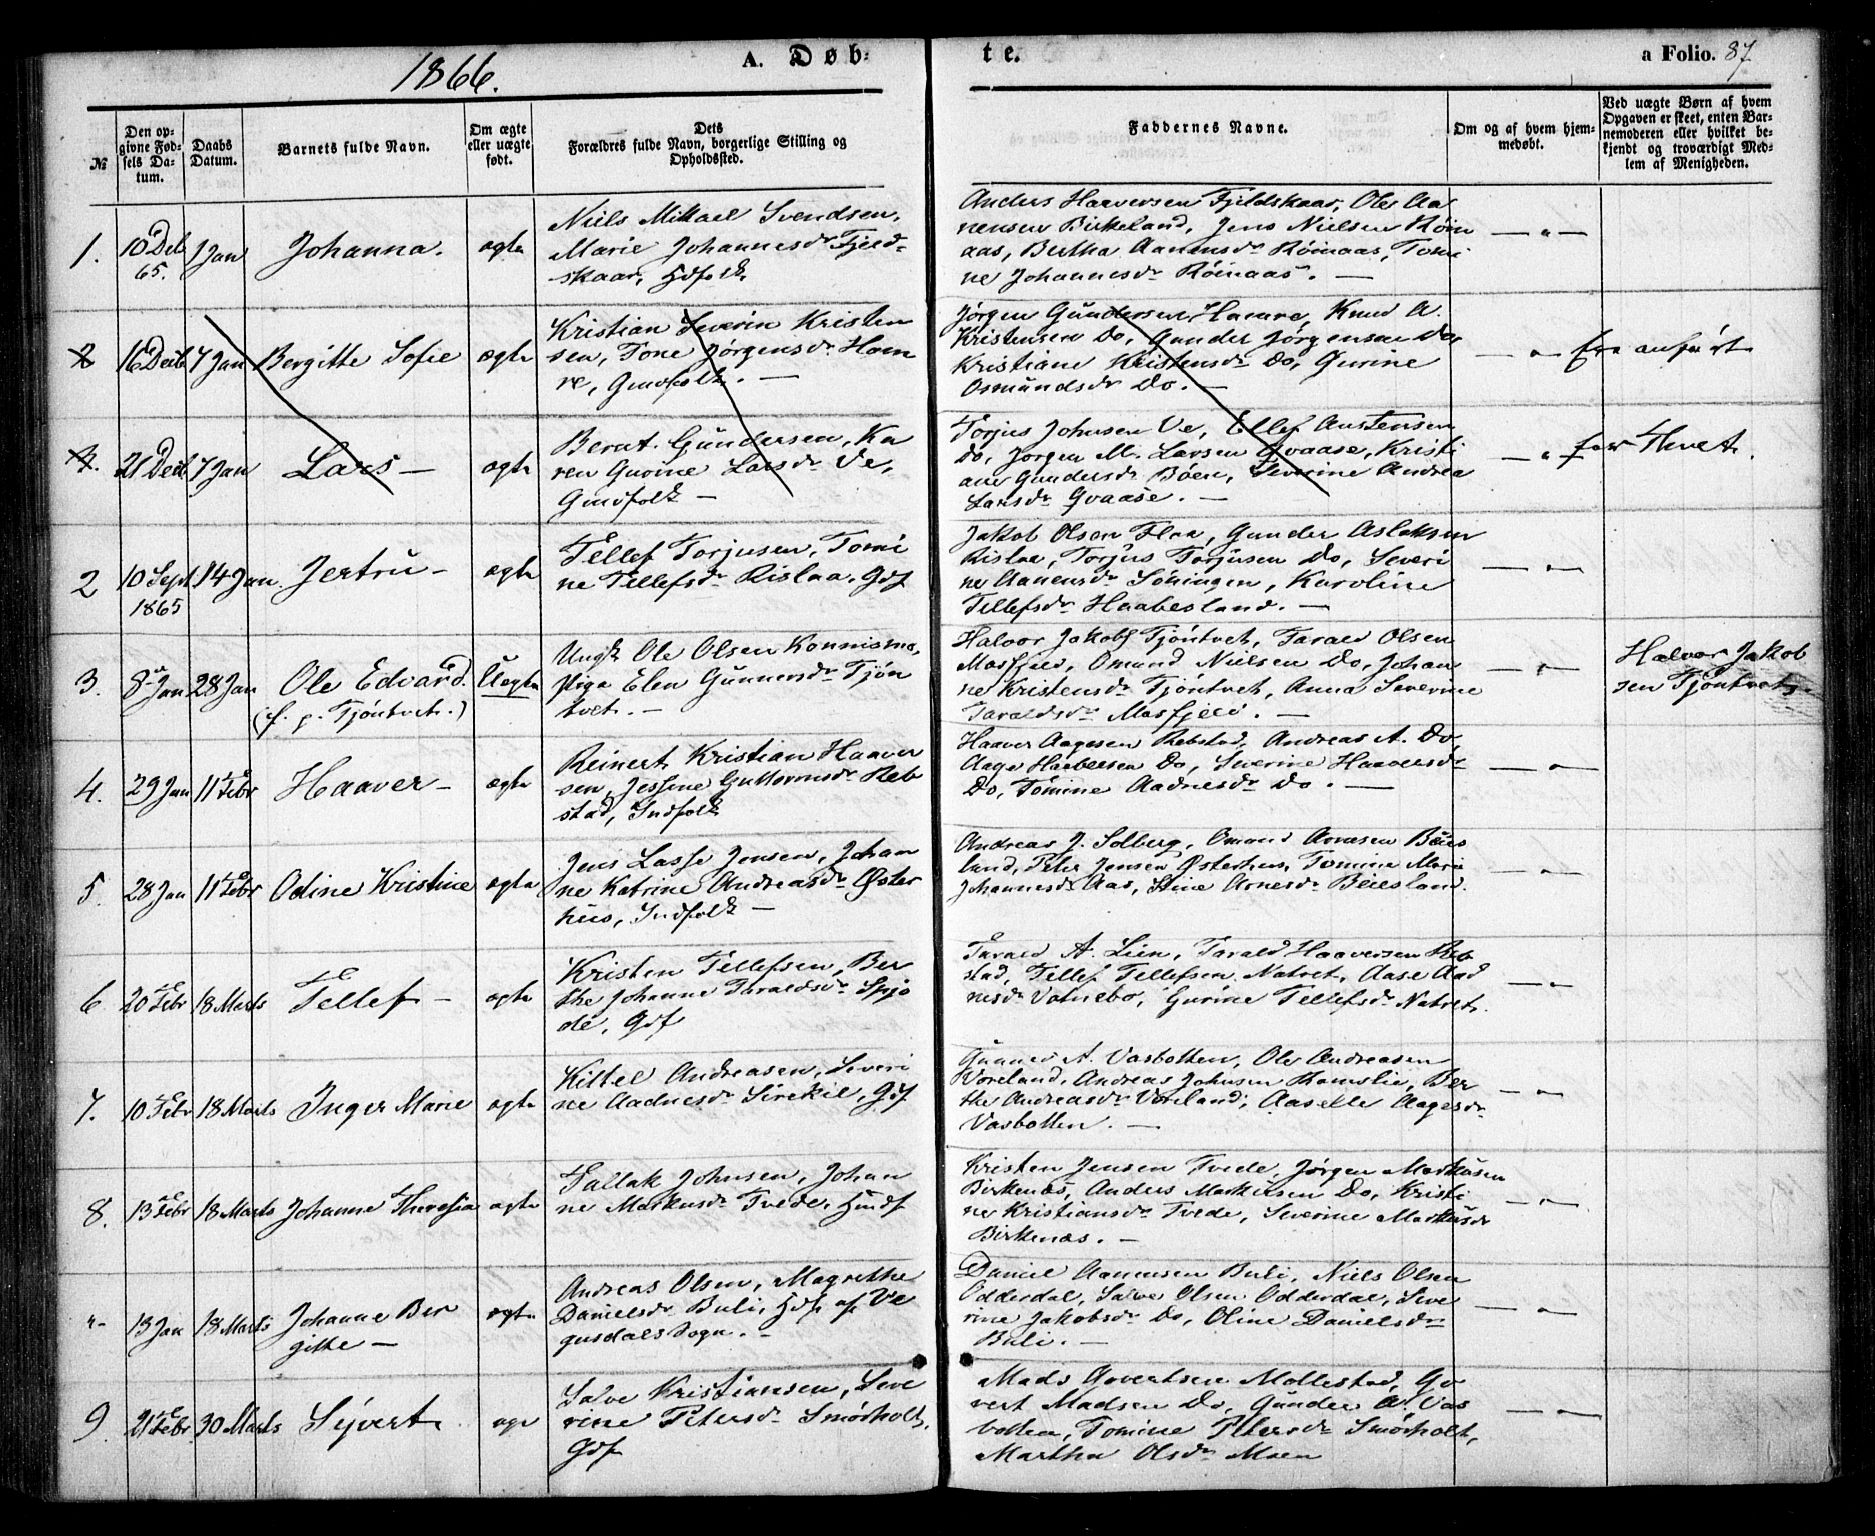 1866.
A. Døb-
te.
a Folio. 87
№
Den op-
givne Fød-
sels Da-
tum.
Daabs
Datum.
Barnets fulde Navn.
Om ægte
eller uægte
født.
Dets
Forældres fulde Navn, borgerlige Stilling og
Opholdssted.
Faddernes Navne.
Om og af hvem hjem-
medøbt.
Ved uægte Børn af hvem
Opgaven er skeet, enten Bar-
nemoderen eller hvilket be-
kjendt og troværdigt Med-
lem af Menigheden.
1.
10 Deb
65.
1 Jan
Johanna.
ægte
Niels Mikael Svendsen,
Marie Johannesdr Fjeld-
skaar, Hdfolk
Anders Haaversen Fjeldskaar, Ole Aa
nensen Birkeland, Jens Nielsen Røin
aas, Bertha Aanensdr Røinaas, Tomi
ne Johannesdr Røinaas. —
— " —
2
16 Decb
7 Jan
Bergitte Sofie
ægte
Kristian Severin Kristen
sen, Tone Jørgensdr Ham
re, Gmdfolk. —
Jørgen Gundersen Hamre, Knud A.
Kristensen Do, Gunder Jørgensen Do,
Kristiane Kristensdr Do, Gurine
Osmundsdr Do. —
— " —
Er anført
3.
21 Decb
7 Jan
Lars —
ægte
Bernt Gundersen, Ka
ren Gurine Larsdr Ve,
Gmdfolk —
Torjus Johnsen Ve, Ellef Austensen
Do, Jørgen M. Larsen Gvaase, Kristi
ane Gundersdr Bøen, Severine Andrea
Larsdr Gvaase. —
— " —
for Hevet.
2
10 Sept
1865
14 Jan.
Jertru —
ægte
Tellef Torjusen, Tomi
ne Tellefsdr Rislaa, Gdf
Jakob Olsen Flaa, Gunder Aslaksen
Rislaa, Torjus Torjusen Do, Severi
ne Aanensdr Søningen, Karoline
Tellefsdr Haabesland. —
— " —
3.
8 Jan
28 Jan
Ole Edvard.
(f. p. Tjøntvet.)
Uægte
Ungk Ole Olsen Konnismo,
Pige Elen Gunnersdr Tjøn
tvet. —
Halvor Jakobs Tjøntvet, Tarald Olsen
Masfjeld, Omund Nielsen Do, Johan
ne Kristensdr Tjøntvet, Anna Severine
Taraldsdr Masfjeld. —
— " —
Halvor Jakob
sen Tjøntvet.
4.
29 Jan
11 Febr
Haaver —
ægte
Reinert Kristian Haaver
sen, Jessine Guttormsdr Reb
stad, Indfolk
Haaver Aagesen Rebstad, Andreas A. Do,
Aage Haaversen Do, Severine Haaversdr
Do, Tomine Aadnesdr Do. —
— " —
5.
28 Jan
11 Febr
Odine Kristine
ægte
Jens Lasse Jensen, Johan
ne Katrine Andreasdr Øster
hus, Indfolk —
Andreas J. Solberg, Omund Arnesen Beies
land, Peter Jensen Østerhus, Tomine Marie
Johannesdr Aas, Stine Arnesdr Beiesland.
— " —
6.
20 Febr
18 Marts
Tellef —
ægte
Kristen Tellefsen, Ber
the Johanne Taraldsdr Spjo
de, Gdf
Tarald A. Lien, Tarald Haaversen Reb
stad, Tellef Tellefsen Natvet, Aase Aad
nesdr Vatnebo, Gurine Tellefsdr Natvet.
— " —
7.
10 Febr
18 Marts
Inger Marie
ægte
Kittel Andreasen, Severi
ne Aadnesdr Sirekil, Gdf
Gunner A. Vasbotten, Ole Andreasen
Voreland, Andreas Johnsen Ramslie, Ber
the Andreasdr Voreland, Aaselle Aagesdr
Vasbotten. —
— " —
8.
13 Febr
18 Marts
Johanne Theresia
ægte
Tallak Johnsen, Johan
ne Markusdr Tvede, Hmdf
Kristen Jensen Tvede, Jørgen Markusen
Birkenæs, Anders Markusen Do, Kristi
ne Kristiansdr Tvede, Severine Markusdr
Birkenæs. —
— " —
"-
13 Jan
18 Marts
Johanne Ber
gitte —
ægte
Andreas Olsen, Magrethe
Danielsdr Buli, Hdf af Ve
gusdals Sogn. —
Daniel Aanensen Buli, Niels Olsen
Odderdal, Salve Olsen Odderdal, Seve
rine Jakobsdr Do, Oline Danielsdr
Buli. —
— " —
9.
21 Febr
30 Marts
Sejvert
ægt
Salve Kristiansen, Seve
rine Petersdr Smørholt,
Gdf
Mads Govertsen Mollestad, Go
vert Madsen Do, Gunder A. Vas
botten, Tomine Petersdr Smørholt,
Martha Olsdr Moen
— " —